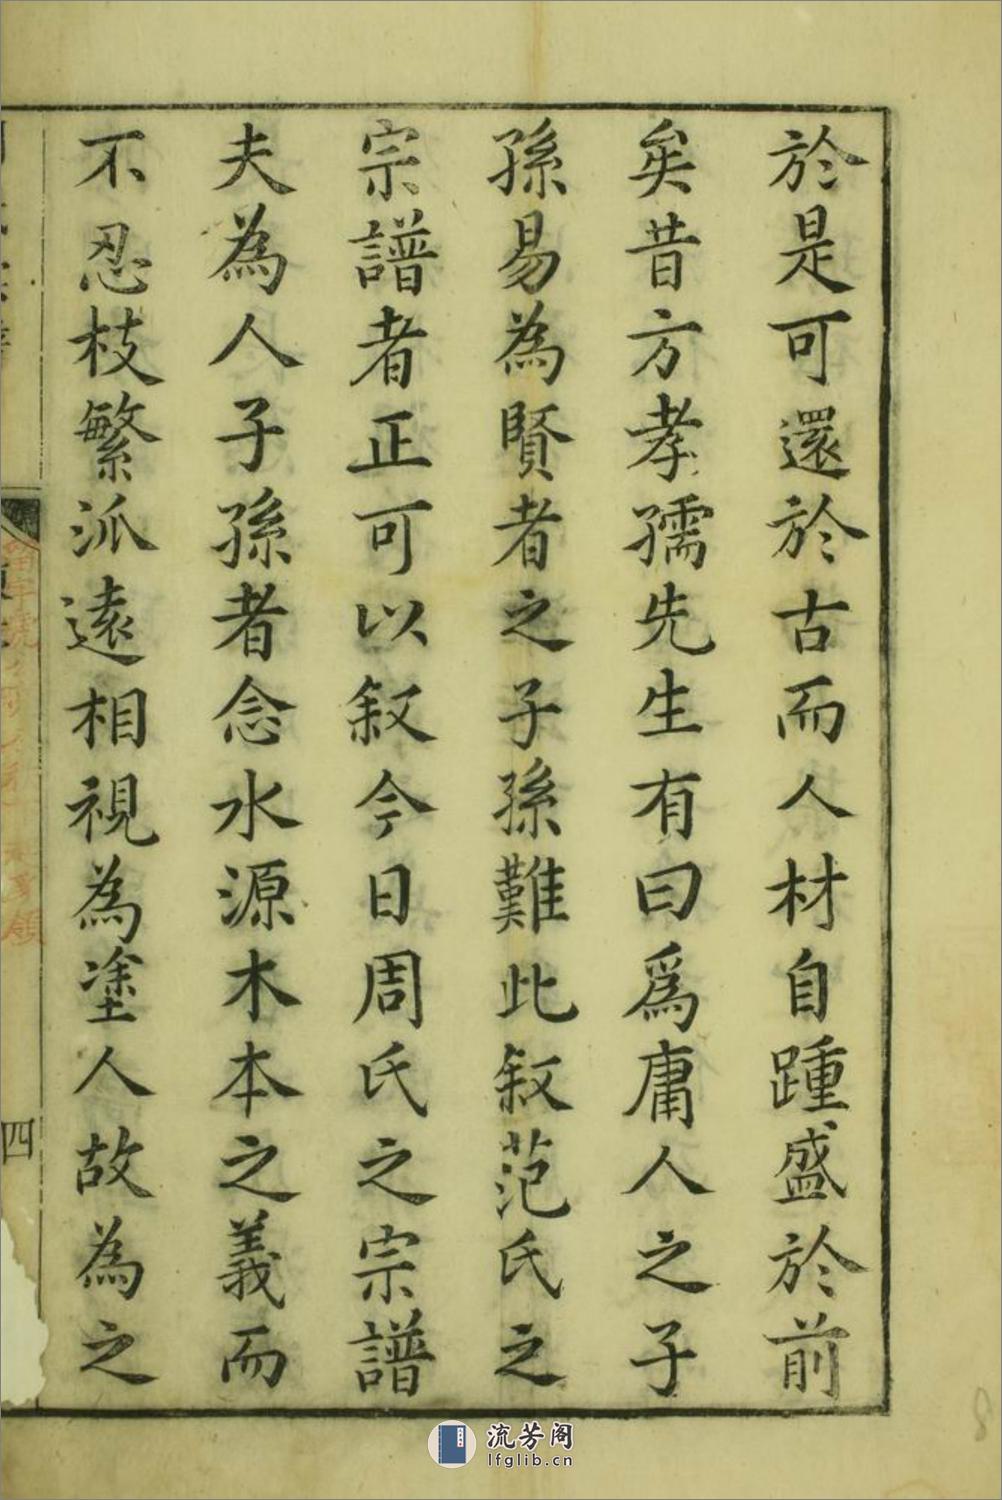 於是可還於古而人材自踵盛於前
矣昔方孝孺先生有曰爲庸人之子
孫易為賢者之子孫難此叙范氏之
宗譜者正可以叙今日周氏之宗譜
夫為人子孫者念水源木本之義而
不忍枝繁派遠相視為塗人故為之
四
流芳阁
lfglib.cn